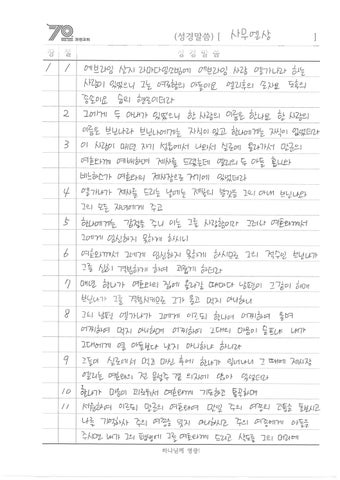 70 과천교회
(성경말씀) [ 사무엘상 ]
장 절 성경말씀
1 1 에브라임 산지 라마다임소빔에 에브라임 사람 엘가나라 하는
사람이 있었으니 그는 여로함의 아들이요 엘리후의 손자요 도후의
증손이요 숩의 현손이더라
2 그에게 두 아내가 있었으니 한 사람의 이름은 한나요 한 사람의
이름은 브닌나라 브닌나에게는 자식이 있고 한나에게는 자식이 없었더라
3 이 사람이 매년 자기 성읍에서 나와서 실로에 올라가서 만군의
여호와께 예배하며 제사를 드렸는데 엘리의 두 아들 홉니와
비느하스가 여호와의 제사장으로 거기에 있었더라
4 엘가나가 제사를 드리는 날에는 제물의 분깃을 그의 아내 브닌나와
그의 모든 자녀에게 주고
5 한나에게는 갑절을 주니 이는 그를 사랑함이라 그러나 여호와께서
그에게 임신하지 못하게 하시니
6 여호와께서 그에게 임신하지 못하게 하시므로 그의 적수인 브닌나가
그를 심히 격분하게 하여 괴롭게 하더라
7 매년 한나가 여호와의 집에 올라갈 때마다 남편이 그같이 하매
브닌나가 그를 격분시키므로 그가 울고 먹지 아니하니
8 그의 남편 엘가나가 그에게 이르되 한나여 어찌하여 울며
어찌하여 먹지 아니하며 어찌하여 그대의 마음이 슬프냐 내가
그대에게 열 아들보다 낫지 아니하냐 하니라
9 그들이 실로에서 먹고 마신 후에 한나가 일어나니 그 때에 제사장
엘리는 여호와의 전 문설주 곁 의자에 앉아 있었더라
10 한나가 마음이 괴로워서 여호와께 기도하고 통곡하며
11 서원하여 이르되 만군의 여호와여 만일 주의 여종의 고통을 돌보시고
나를 기억하사 주의 여종을 잊지 아니하시고 주의 여종에게 아들을
주시면 내가 그의 평생에 그를 여호와께 드리고 삭도를 그의 머리에
하나님께 영광!